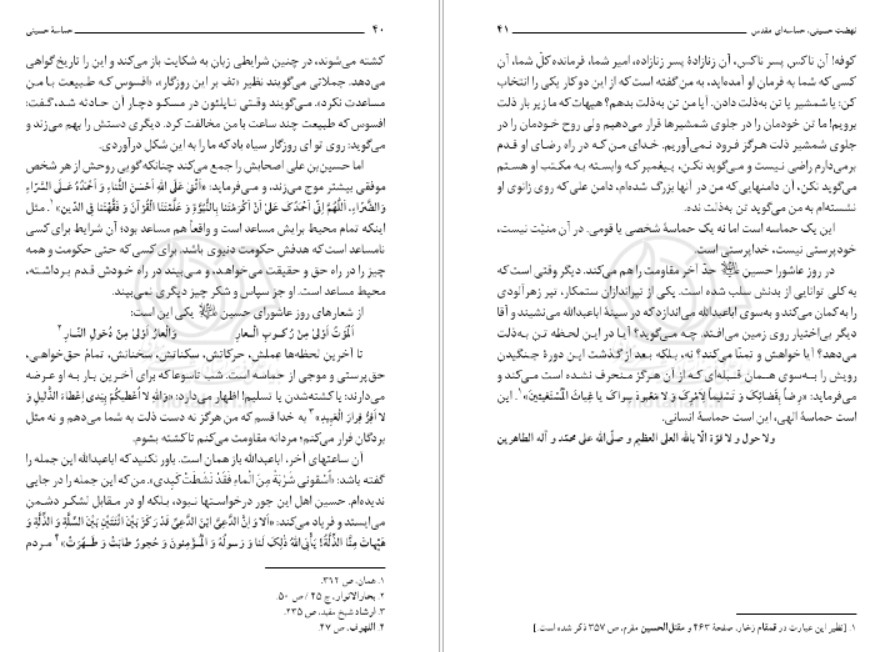 ۴۰ حماسهٔ حسینی
کشته می‌شوند، در چنین شرایطی زبان به شکایت باز می‌کند و این را تاریخ گواهی
می‌دهد. جملاتی می‌گویند نظیر «تف بر این روزگار»، «افسوس که طبیعت با من
مساعدت نکرد». می‌گویند وقتی ناپلئون در مسکو دچار آن حادثه شد، گفت:
افسوس که طبیعت چند ساعت با من مخالفت کرد. دیگری دستش را بهم می‌زند و
می‌گوید: روی تو ای روزگار سیاه باد که ما را به این شکل درآوردی.
اما حسین‌بن علی اصحابش را جمع می‌کند چنانکه گویی روحش از هر شخص
موفقی بیشتر موج می‌زند، و می‌فرماید: «اُثْنی عَلَی اللهِ اَحْسَنَ الثَّناءِ وَ اَحْمَدُهُ عَلَی السَّرّاءِ
وَالضَّرّاءِ، اَللّٰهُمَّ اِنّی اَحْمَدُکَ عَلیٰ اَنْ اَکْرَمْتَنا بِالنُّبُوَّةِ وَ عَلَّمْتَنَا الْقُرْآنَ وَ فَقَّهْتَنا فِی الدّینِ»۱. مثل
اینکه تمام محیط برایش مساعد است و واقعاً هم مساعد بود؛ آن شرایط برای کسی
نامساعد است که هدفش حکومت دنیوی باشد. برای کسی که حتی حکومت و همه
چیز را در راه حق و حقیقت می‌خواهد، و می‌بیند در راه خودش قدم برداشته،
محیط مساعد است. او جز سپاس و شکر چیز دیگری نمی‌بیند.
از شعارهای روز عاشورای حسین علیه‌السلام یکی این است:
اَلْمَوْتُ اَوْلیٰ مِنْ رُکوبِ الْعارِ وَالْعارُ اَوْلیٰ مِنْ دُخولِ النّارِ ۲
تا آخرین لحظه‌ها عملش، حرکاتش، سکناتش، سخنانش، تمام حق‌خواهی،
حق‌پرستی و موجی از حماسه است. شب تاسوعا که برای آخرین بار به او عرضه
می‌دارند: یا کشته‌شدن یا تسلیم! اظهار می‌دارد: «وَاللهِ لا اُعْطیکُمْ بِیَدی اِعْطاءَ الذَّلیلِ وَ
لا اَفِرُّ فِرارَ الْعَبیدِ»۳ به خدا قسم که من هرگز نه دست ذلت به شما می‌دهم و نه مثل
بردگان فرار می‌کنم؛ مردانه مقاومت می‌کنم تا کشته بشوم.
آن ساعتهای آخر، اباعبدالله باز همان است. باور نکنید که اباعبدالله این جمله را
گفته باشد: «اُسْقونی شَرْبَةً مِنَ الْماءِ فَقَدْ نَشَطَتْ کَبِدی». من که این جمله را در جایی
ندیده‌ام. حسین اهل این جور درخواستها نبود، بلکه او در مقابل لشکر دشمن
می‌ایستد و فریاد می‌کند: «اَلا وَ اِنَّ الدَّعِیَّ ابْنَ الدَّعِیِّ قَدْ رَکَزَ بَیْنَ اثْنَتَیْنِ بَیْنَ السِّلَّةِ وَ الذِّلَّةِ وَ
هَیْهاتَ مِنَّا الذِّلَّةُ! یَأْبَی اللهُ ذٰلِکَ لَنا وَ رَسولُهُ وَ الْمُؤْمِنونَ وَ حُجورٌ طابَتْ وَ طَهُرَتْ»۴ مردم
۱. همان، ص ۳۶۲.
۲. بحارالانوار، ج ۴۵ / ص ۵۰.
۳. ارشاد شیخ مفید، ص ۲۳۵.
۴. اللهوف، ص ۴۷.
نهضت حسینی، حماسه‌ای مقدس ۴۱
کوفه! آن ناکس پسر ناکس، آن زنازادهٔ پسر زنازاده، امیر شما، فرمانده کلّ شما، آن
کسی که شما به فرمان او آمده‌اید، به من گفته است که از این دو کار یکی را انتخاب
کن: یا شمشیر یا تن به‌ذلت دادن. آیا من تن به‌ذلت بدهم؟ هیهات که ما زیر بار ذلت
برویم! ما تن خودمان را در جلوی شمشیرها قرار می‌دهیم ولی روح خودمان را در
جلوی شمشیر ذلت هرگز فرود نمی‌آوریم. خدای من که در راه رضای او قدم
برمی‌دارم راضی نیست و می‌گوید نکن، پیغمبر که وابسته به مکتب او هستم
می‌گوید نکن، آن دامنهایی که من در آنها بزرگ شده‌ام، دامن علی که روی زانوی او
نشسته‌ام به من می‌گوید تن به‌ذلت نده.
این یک حماسه است اما نه یک حماسهٔ شخصی یا قومی. در آن منیّت نیست،
خودپرستی نیست، خداپرستی است.
در روز عاشورا حسین علیه‌السلام حدّ آخر مقاومت را هم می‌کند. دیگر وقتی است که
به کلی توانایی از بدنش سلب شده است. یکی از تیراندازان ستمکار، تیر زهرآلودی
را به کمان می‌کند و به‌سوی اباعبدالله می‌اندازد که در سینهٔ اباعبدالله می‌نشیند و آقا
دیگر بی‌اختیار روی زمین می‌افتد. چه می‌گوید؟ آیا در این لحظه تن به‌ذلت
می‌دهد؟ آیا خواهش و تمنّا می‌کند؟ نه، بلکه بعد از گذشت این دورهٔ جنگیدن
رویش را به‌سوی همان قبله‌ای که از آن هرگز منحرف نشده است می‌کند و
می‌فرماید: «رِضاً بِقَضائِکَ وَ تَسْلیماً لِاَمْرِکَ وَ لا مَعْبودَ سِواکَ یا غِیاثَ الْمُسْتَغیثینَ»۱. این
است حماسهٔ الهی، این است حماسهٔ انسانی.
ولا حول و لا قوّة الّا بالله العلی العظیم و صلّی الله علی محمّد و آله الطاهرین
۱. [نظیر این عبارت در قمقام زخار، صفحهٔ ۴۶۳ و مقتل‌الحسین مقرم، ص ۳۵۷ ذکر شده است.]
motahari.ir